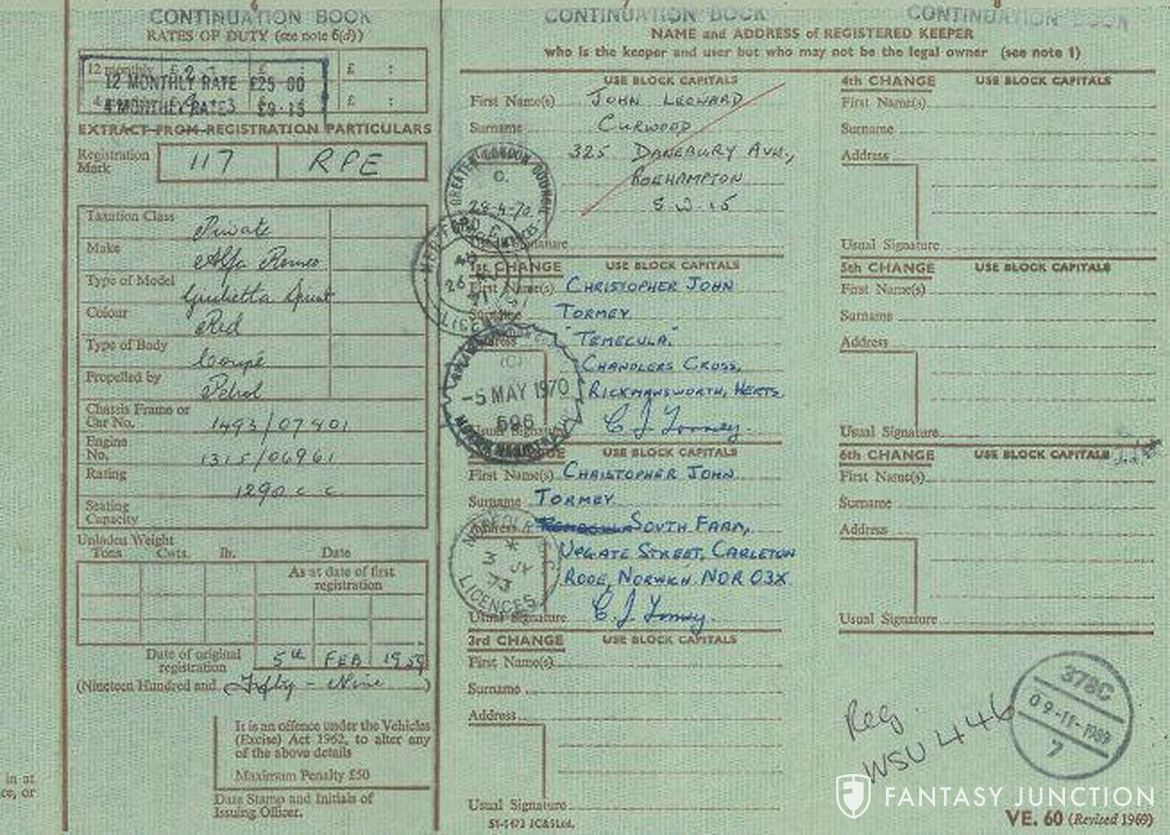 6
CONTINUATION BOOK
RATES OF DUTY (see note 6(d))
12 monthly £ : £ :
12 MONTHLY RATE £25·00
4 MONTHLY RATE £9·15
£ :
EXTRACT FROM REGISTRATION PARTICULARS
Registration Mark 117 RPE
Taxation Class Private
Make Alfa Romeo
Type of Model Giulietta Sprint
Colour Red
Type of Body Coupé
Propelled by Petrol
Chassis Frame or
Car No. 1493/07801
Engine
No. 1315/06961
Rating
1290 c.c.
Seating
Capacity
Unladen Weight
Tons Cwts. lb. Date
As at date of first
registration
Date of original
registration 5th FEB 1959
(Nineteen Hundred and Fifty-Nine)
It is an offence under the Vehicles
(Excise) Act 1962, to alter any
of the above details
Maximum Penalty £50
Date Stamp and Initials of
Issuing Officer.
in at
ce, or
7
CONTINUATION BOOK
NAME and ADDRESS of REGISTERED KEEPER
who is the keeper and user but who may not be the legal owner (see note 1)
USE BLOCK CAPITALS
First Name(s) JOHN LEONARD
Surname CURWOOD
325 DANEBURY AVE.,
ROEHAMPTON
S.W.15
Usual Signature
GREATER LONDON COUNCIL
C.
28·4·70
1st CHANGE USE BLOCK CAPITALS
First Name(s) CHRISTOPHER JOHN
Surname TORMEY
Address "TEMECULA."
CHANDLERS CROSS,
RICKMANSWORTH, HERTS.
Usual Signature C J Tormey.
26
71
LICENCES
(C)
-5 MAY 1970
596
CHANGE USE BLOCK CAPITALS
First Name(s) CHRISTOPHER JOHN.
Surname TORMEY.
Address SOUTH FARM,
UPGATE STREET, CARLETON
RODE, NORWICH. NOR 03X.
Usual Signature C. J. Tormey.
NORFOLK C.C.
3 JY
73
LICENCES
3rd CHANGE USE BLOCK CAPITALS
First Name(s)
Surname
Address
Usual Signature
51-1473 JC&SLtd.
8
CONTINUATION BOOK
4th CHANGE USE BLOCK CAPITALS
First Name(s)
Surname
Address
Usual Signature
5th CHANGE USE BLOCK CAPITALS
First Name(s)
Surname
Address
Usual Signature
6th CHANGE USE BLOCK CAPITALS
First Name(s)
Surname
Address
Usual Signature
Reg
WSU 446
378C
09-11-1989
7
FANTASY JUNCTION
VE. 60 (Revised 1969)